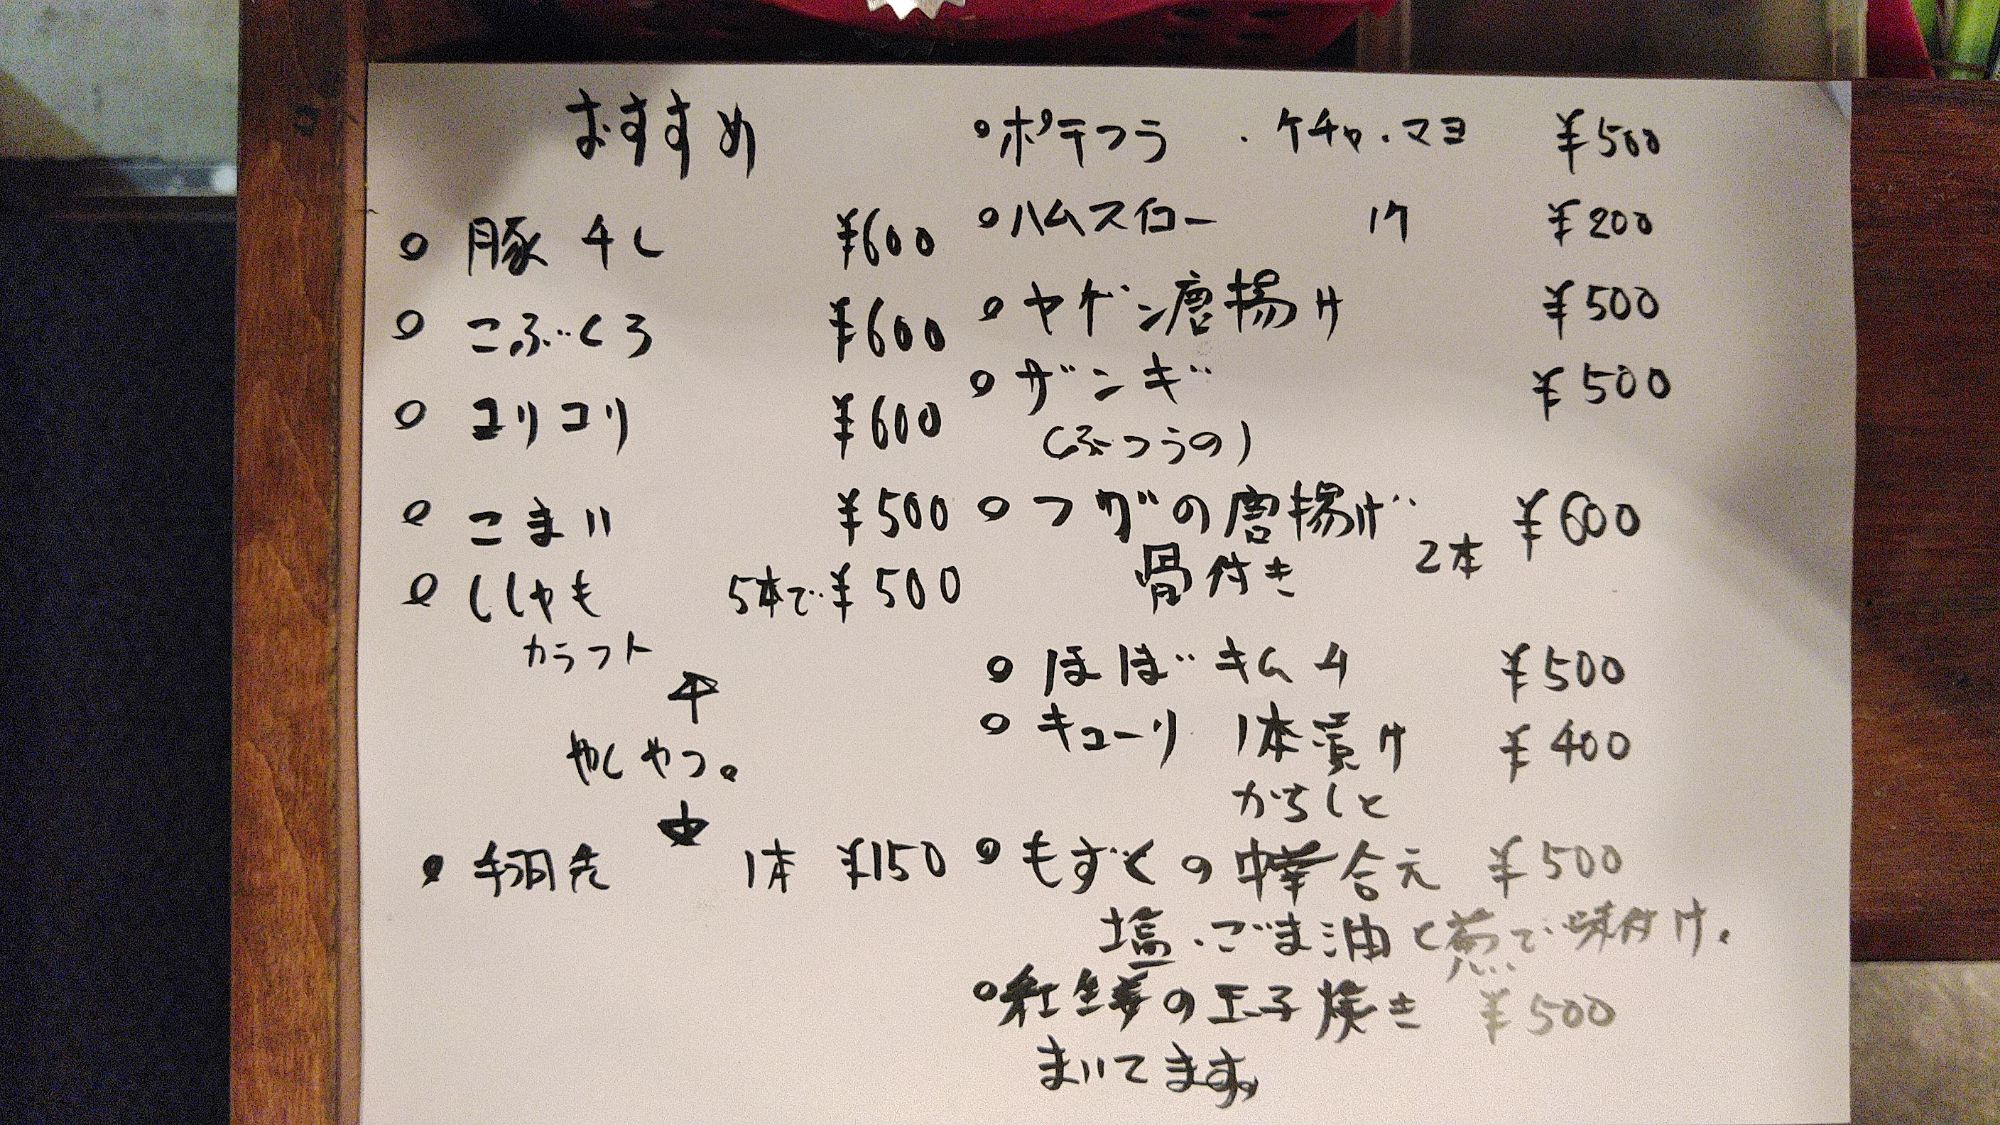 おすすめ
○ 豚チレ ¥600
○ こぶくろ ¥600
○ コリコリ ¥600
○ こまい ¥500
○ ししゃも 5本で¥500
カラフト
↑
やくやつ。
↓
○ 手羽先 1本 ¥150
○ ポテフラ ・ケチャ・マヨ ¥500
○ ハムスロー 1ケ ¥200
○ ヤゲン唐揚け ¥500
○ ザンギ ¥500
(ふつうの)
○ フグの唐揚げ 2本 ¥600
骨付き
○ ほぼキムチ ¥500
○ キューリ 1本漬け ¥400
からしと
○ もずくの中華合え ¥500
塩・ごま油と煮で味付け。
○ 紅生姜の玉子焼き ¥500
まいてます。